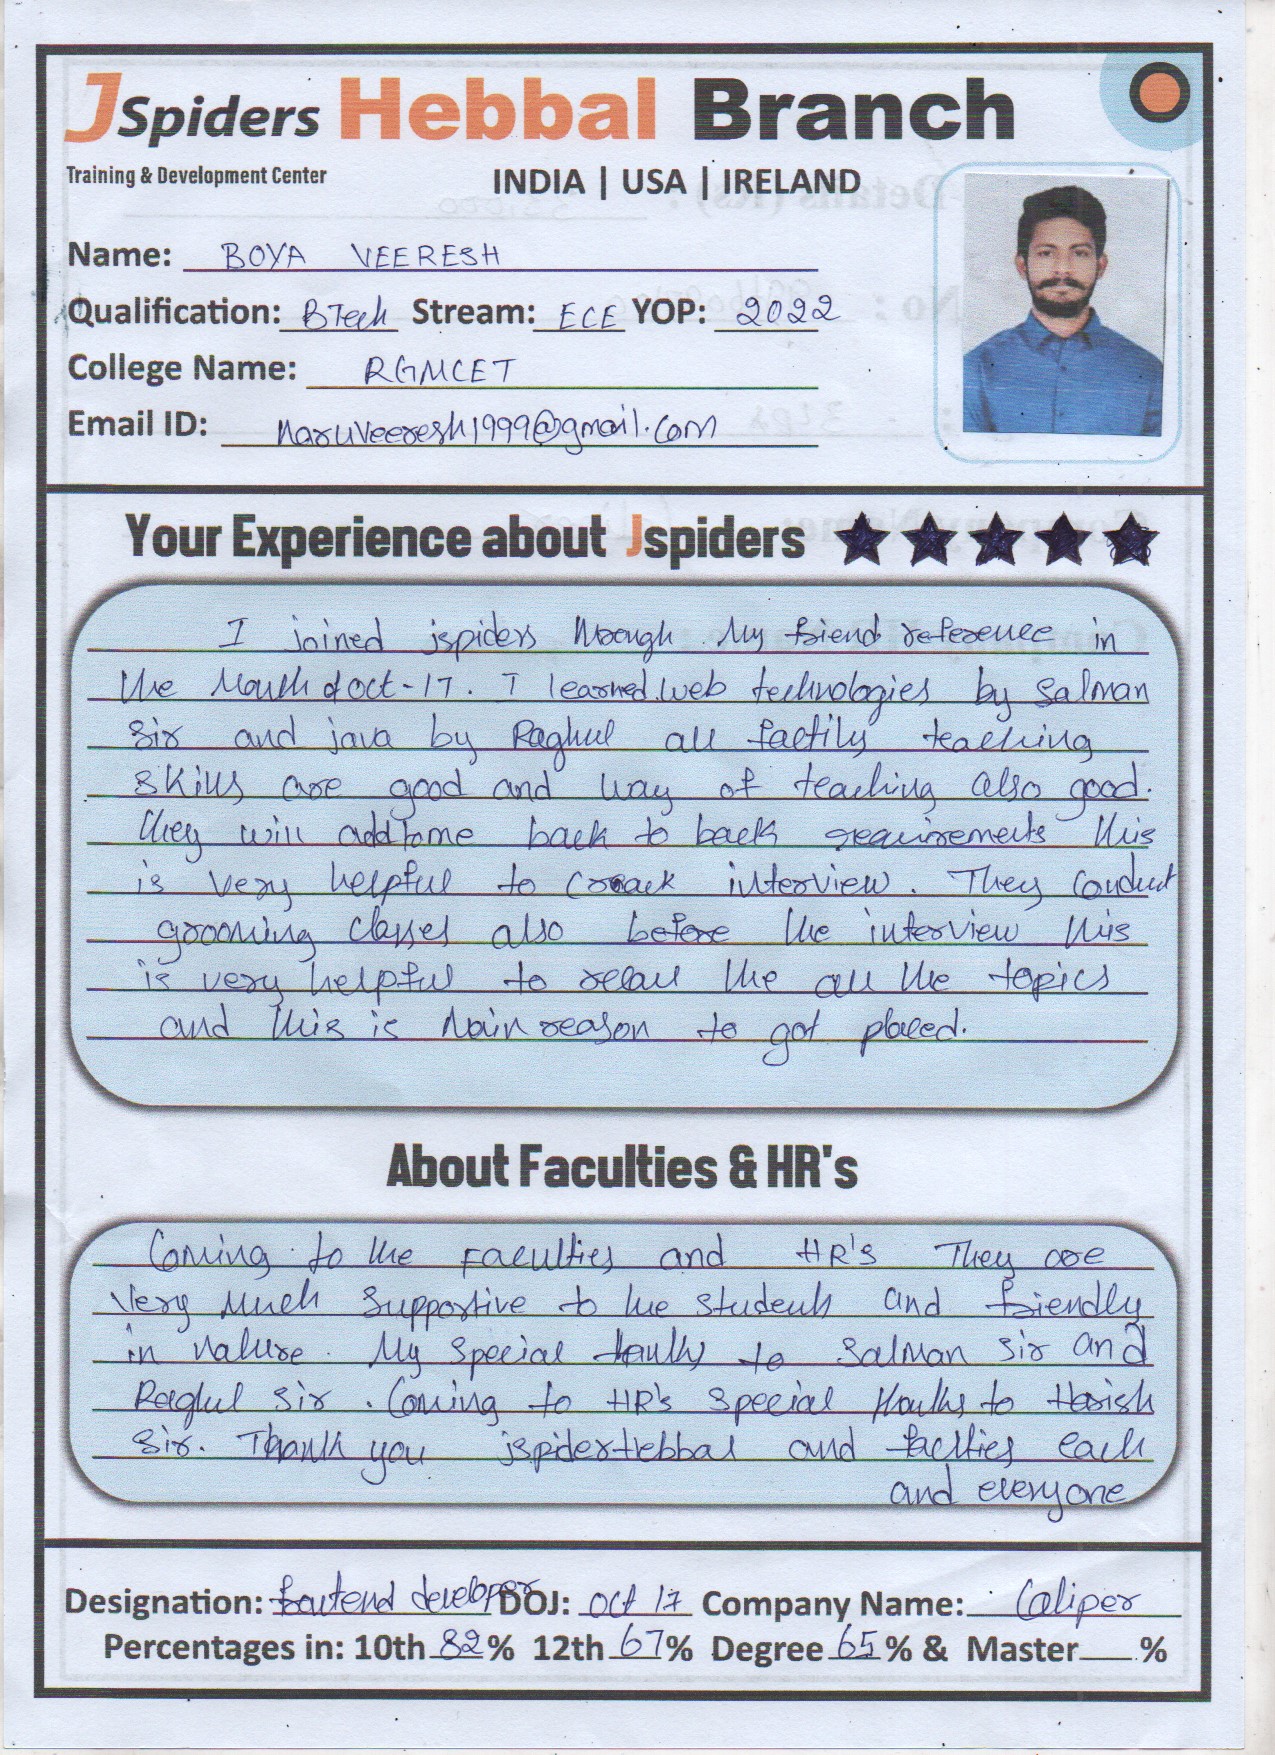 JSpiders Hebbal Branch
Training & Development Center
INDIA | USA | IRELAND
Name: BOYA VEERESH
Qualification: BTech Stream: ECE YOP: 2022
College Name: RGMCET
Email ID: naruveeresh1999@gmail.com
Your Experience about Jspiders
I joined jspiders through My friend reference in
the Month of oct-17. I learned web technologies by Salman
Sir and java by Raghul all factily teaching
skills are good and way of teaching also good.
they will add to me back to back requirements this
is very helpful to crack interview. They Conduct
grooming classes also before the interview this
is very helpful to recall the all the topics
and this is Main reason to got placed.
About Faculties & HR's
Coming to the Faculties and HR's They are
Very Much Supportive to the Students and friendly
in Nature. My Special thanks to Salman Sir and
Raghul Sir. Coming to HR's Special thanks to Harish
Sir. Thank you jspider Hebbal and faclties each
and everyone
Designation: frontend developer DOJ: oct 17 Company Name: Caliper
Percentages in: 10th 82% 12th 67% Degree 65% & Master %